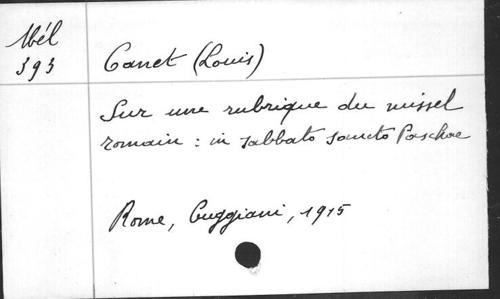 Mél
393
Canet (Louis)
Sur une rubrique du missel
romain : in sabbato sancto Paschae
Rome, Cuggiani, 1915